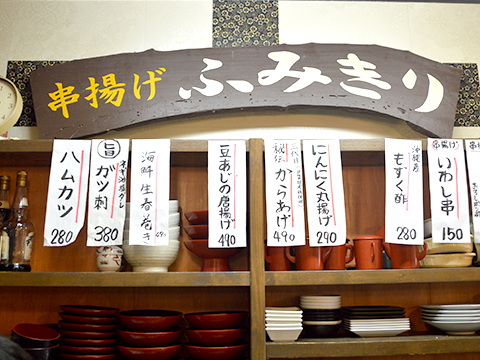 串揚げ ふみきり
ハムカツ
280
旨
ガツ刺
380
海鮮生春巻き
490
豆あじの唐揚げ
490
二代目
秘伝
からあげ
490
にんにく丸揚げ
290
沖縄産
もずく酢
280
串揚げ
いわし串
150
串揚げ